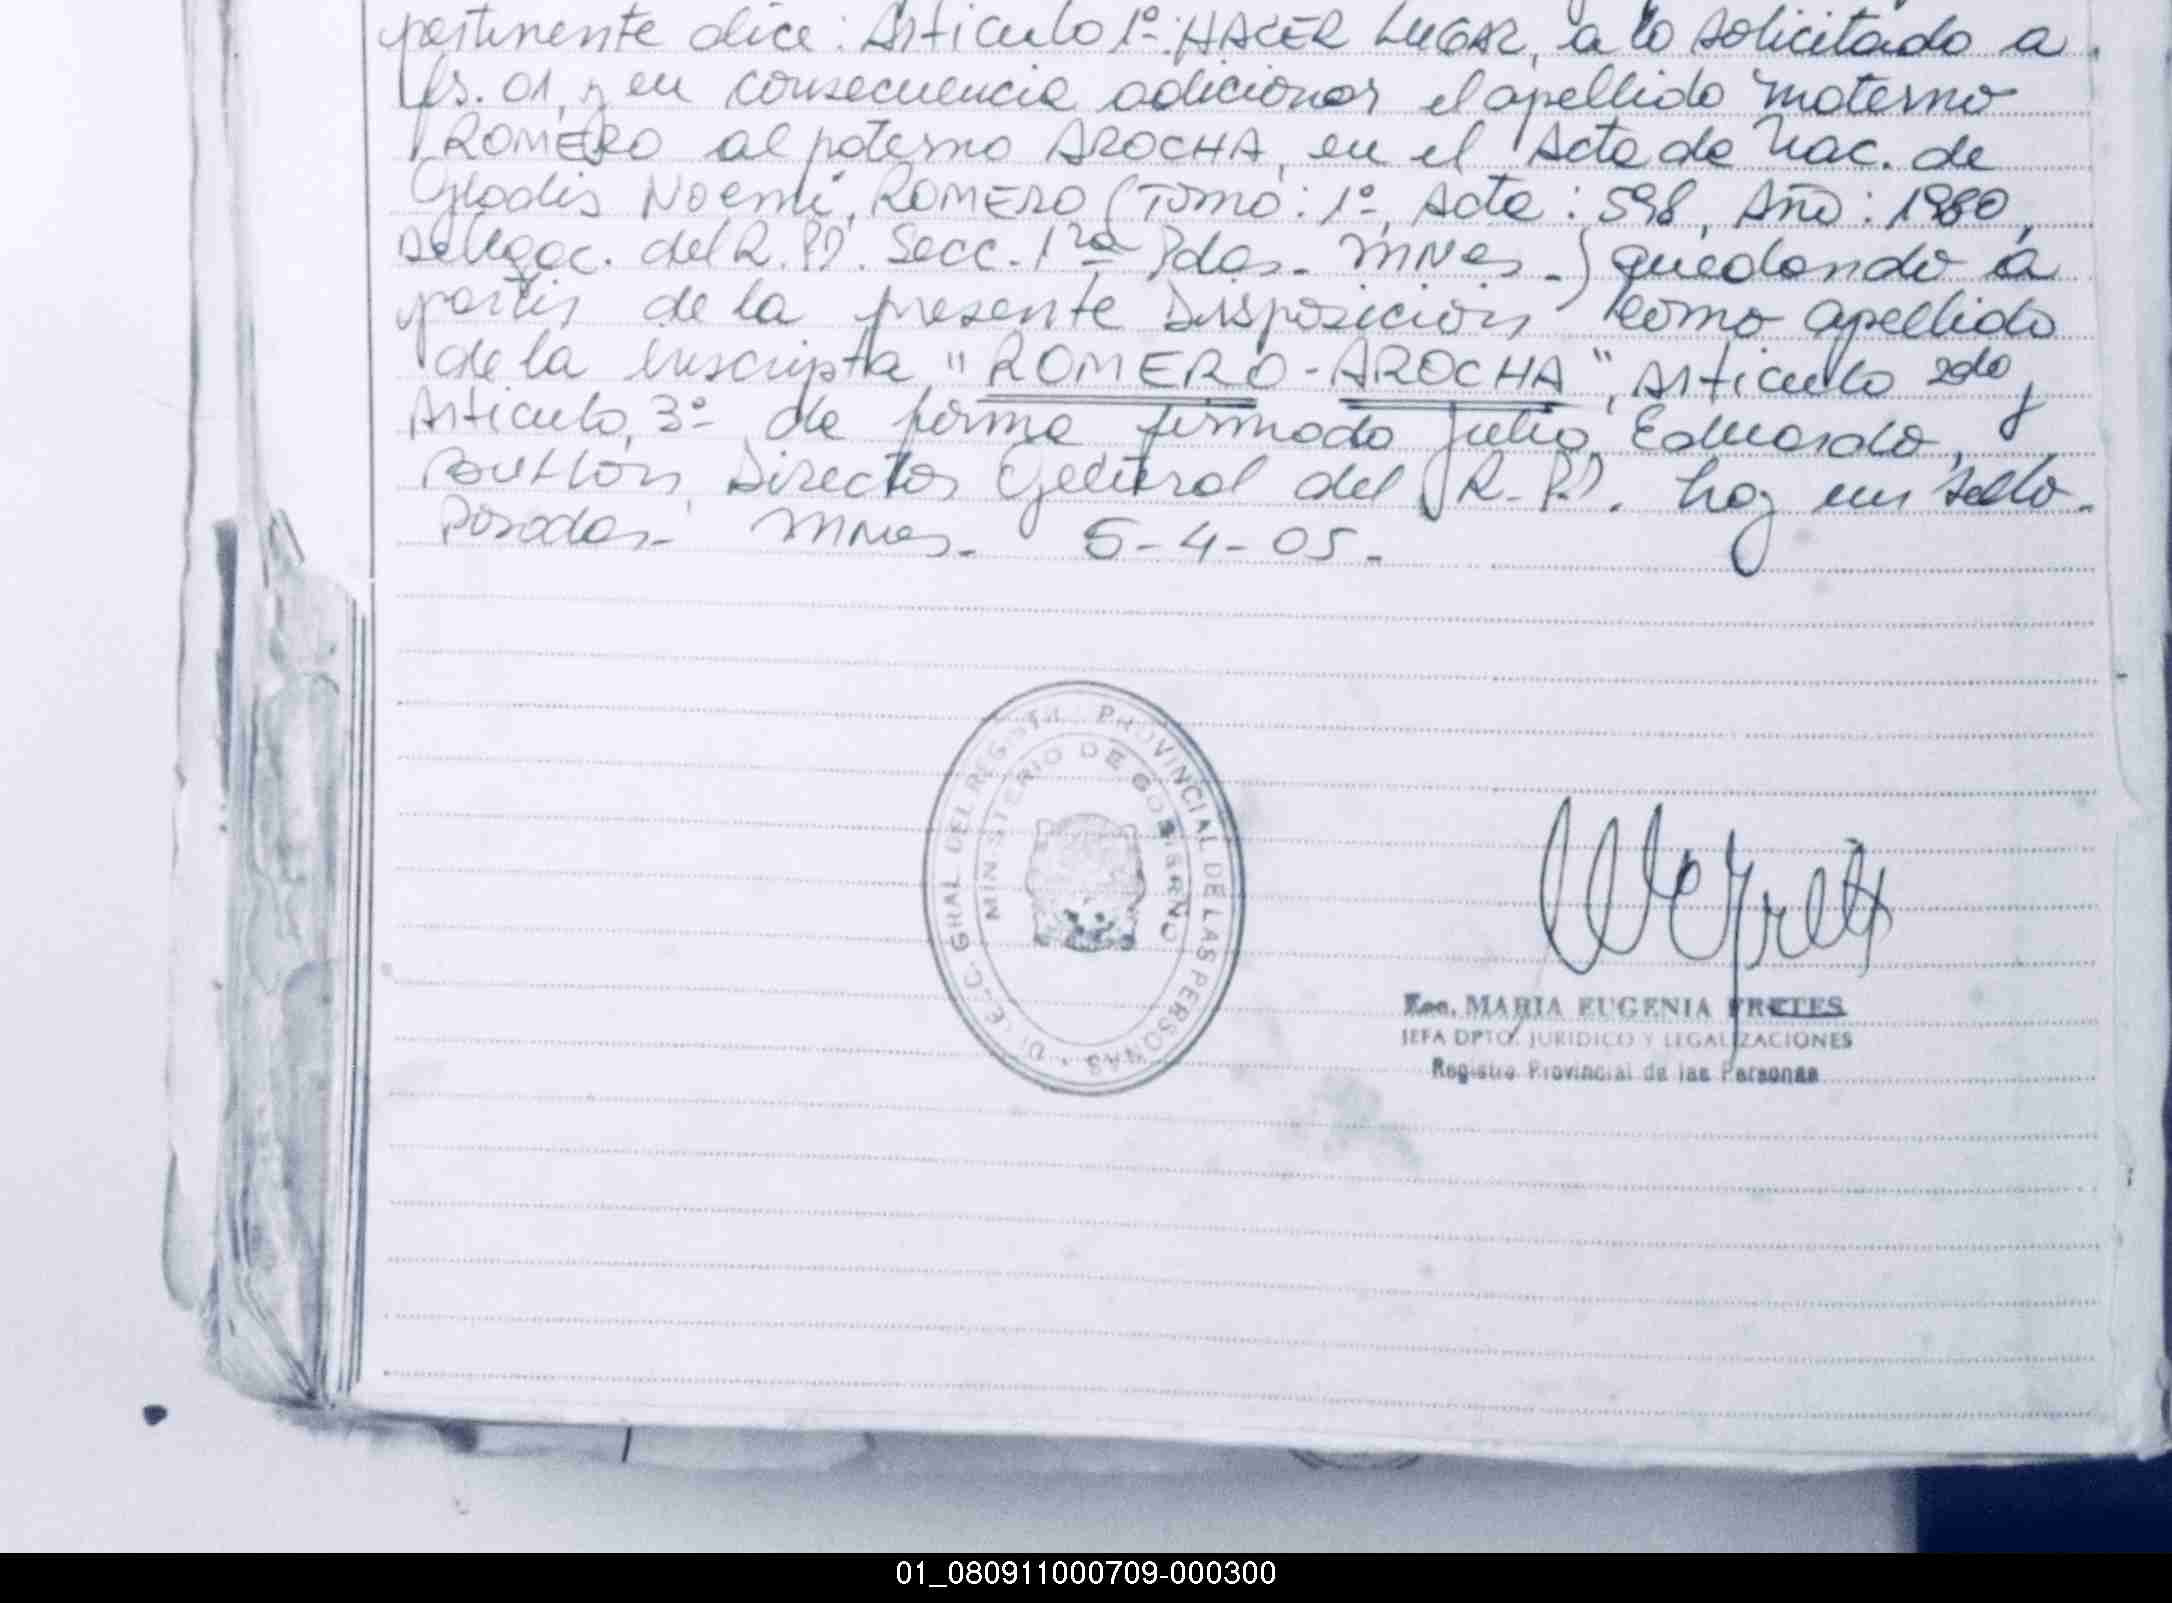 pertinente dice: Artículo 1º: HACER LUGAR, a lo solicitado a
fs. 01, y en consecuencia adicionar el apellido materno
ROMERO al paterno AROCHA, en el Acta de Nac. de
Gladis Noemí, ROMERO (Tomo: 1º, Acta: 598, Año: 1980,
Delegac. del R.P. Secc. 1ra Pdas. MNes.) quedando a
partir de la presente Disposición como apellido
de la inscripta "ROMERO-AROCHA", Artículo 2do,
Artículo, 3º de forma firmado Julio Eduardo,
Director General del R.P. hay un sello.
Posadas. MNes. 5-4-05.
DIREC. GRAL DEL REGISTR. PROVINCIAL DE LAS PERSONAS
MINISTERIO DE GOBIERNO
Esc. MARIA EUGENIA FRETES
JEFA DPTO. JURIDICO Y LEGALIZACIONES
Registro Provincial de las Personas
01_080911000709-000300